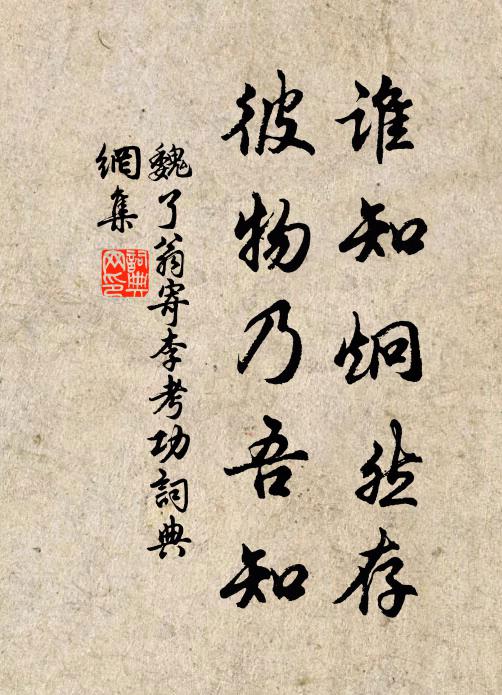 谁知炯然存
彼物乃吾知
魏了翁寄李考功詞典
網集
詞典
网印